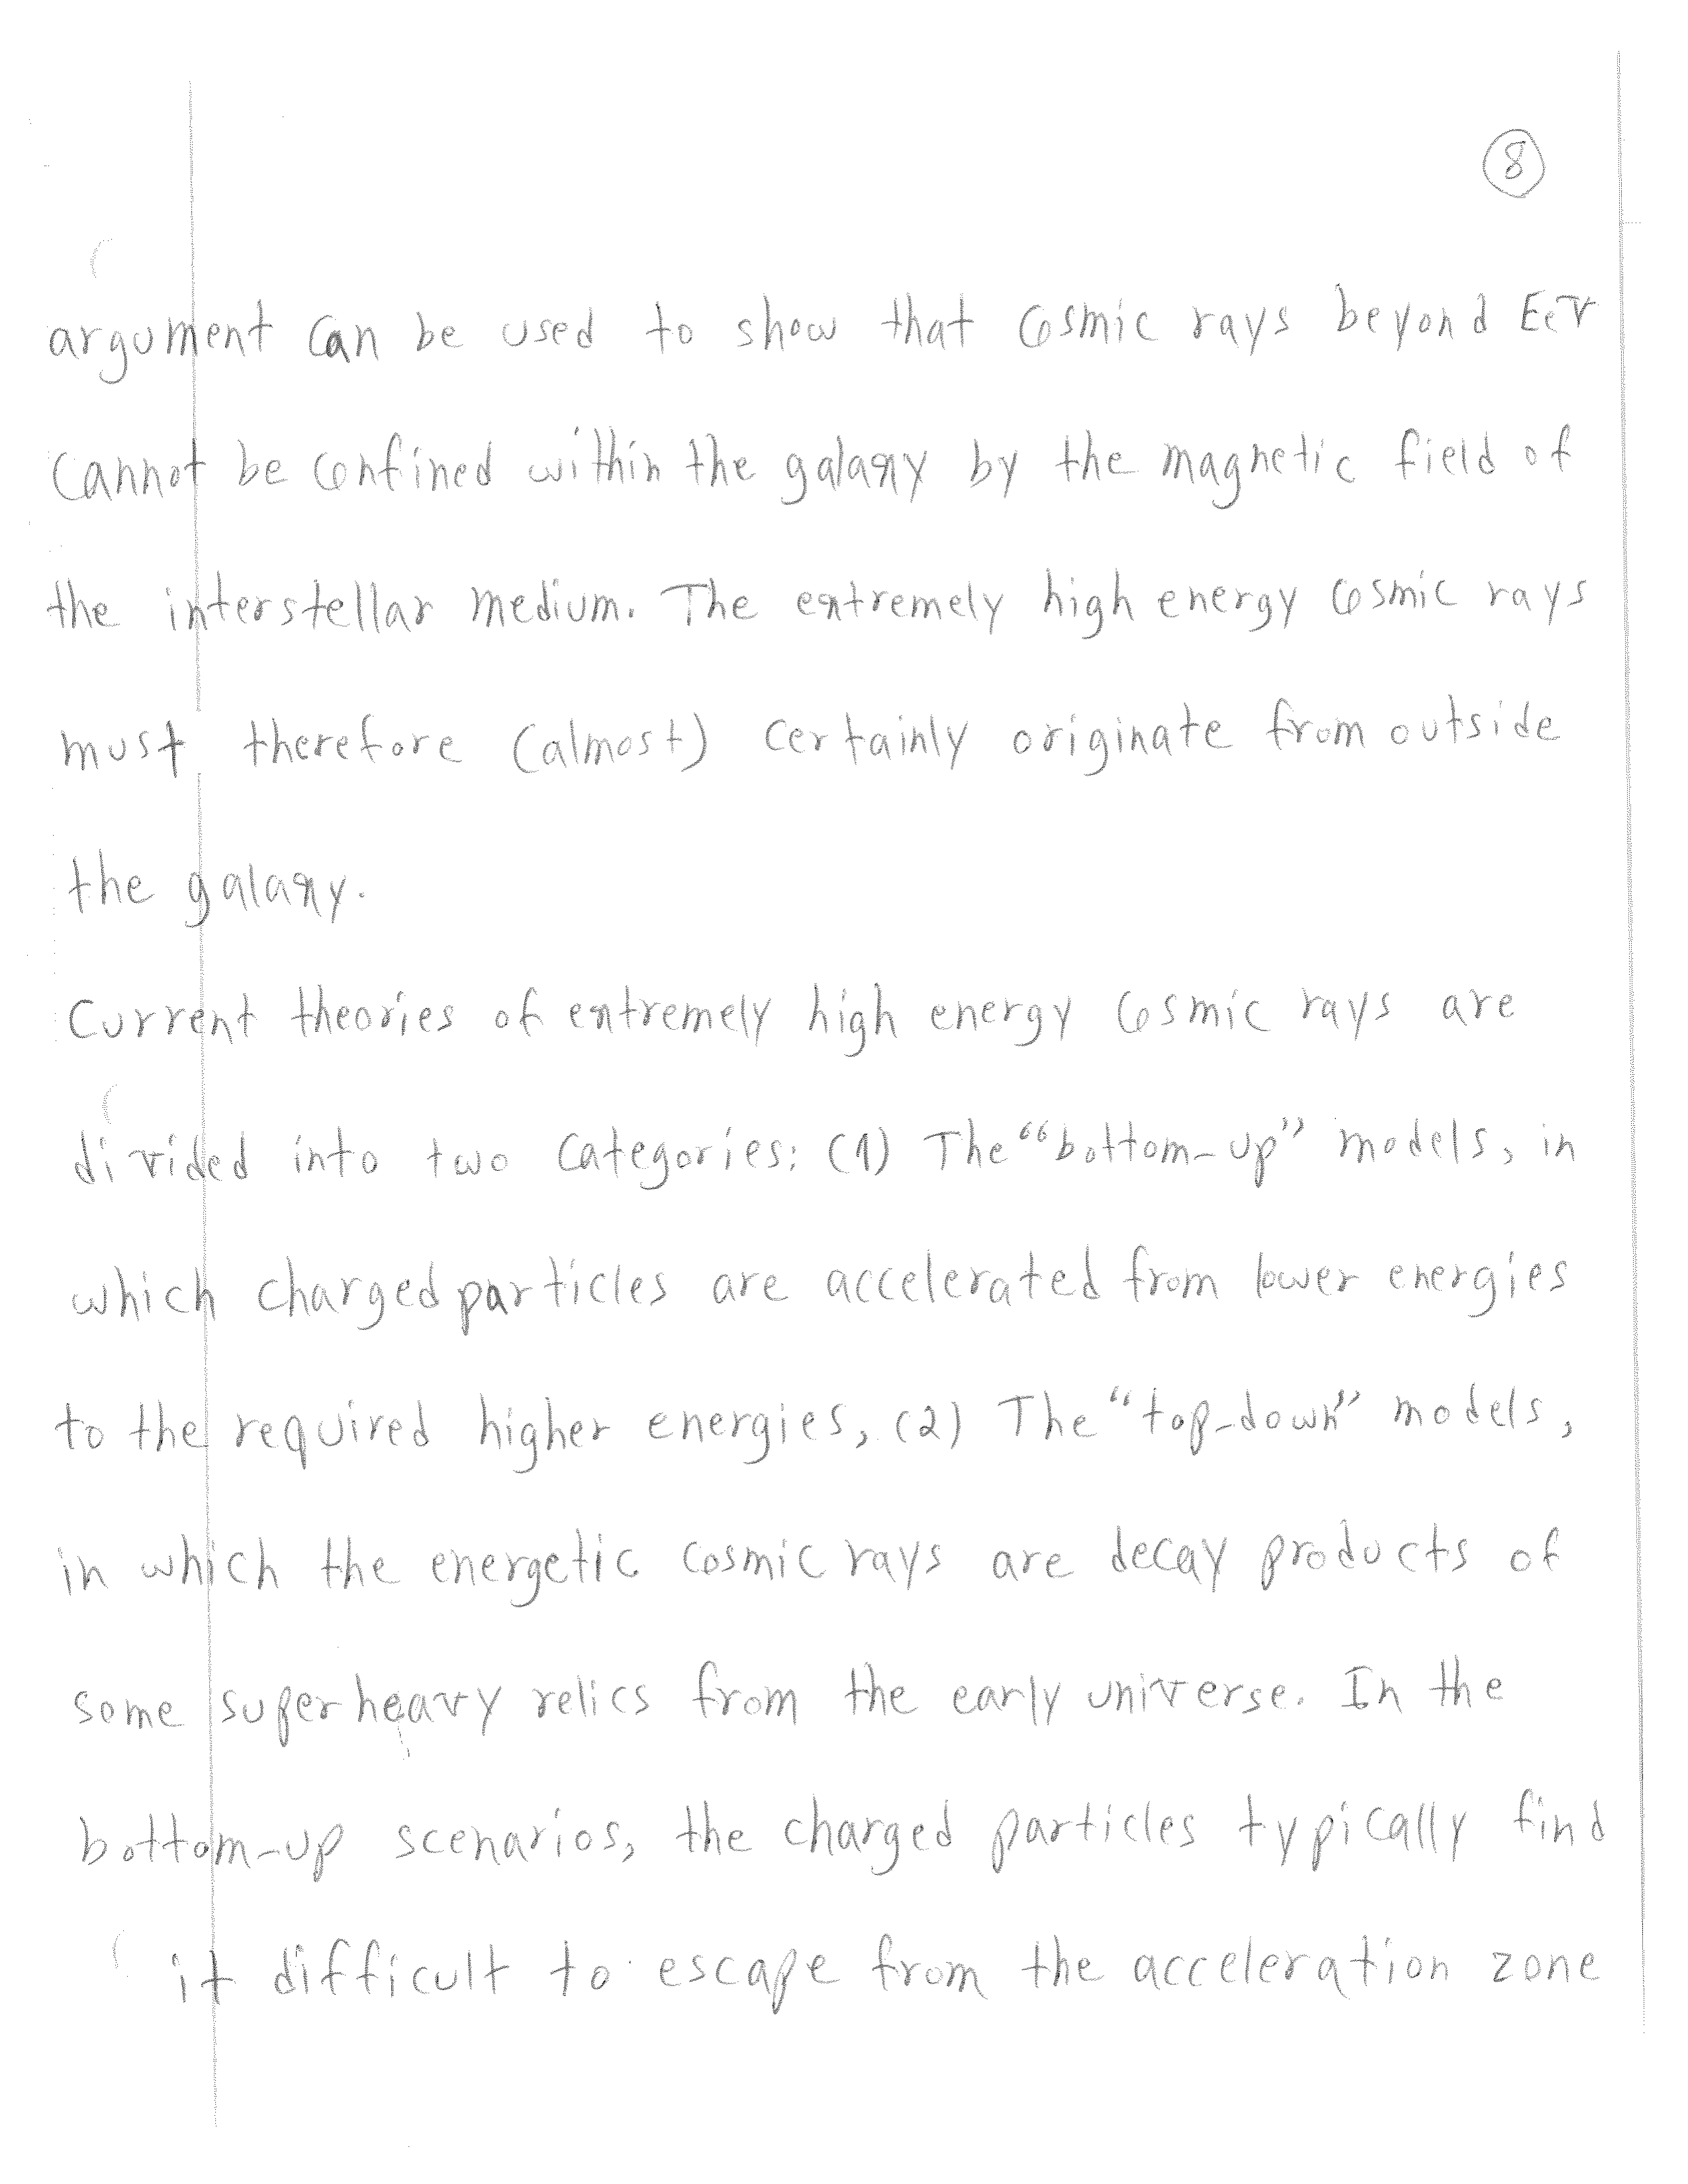 8
argument can be used to show that cosmic rays beyond EeV
cannot be confined within the galaxy by the magnetic field of
the interstellar medium. The extremely high energy cosmic rays
must therefore (almost) certainly originate from outside
the galaxy.
Current theories of extremely high energy cosmic rays are
divided into two categories: (1) The “bottom-up” models, in
which charged particles are accelerated from lower energies
to the required higher energies, (2) The “top-down” models,
in which the energetic cosmic rays are decay products of
some super heavy relics from the early universe. In the
bottom-up scenarios, the charged particles typically find
it difficult to escape from the acceleration zone